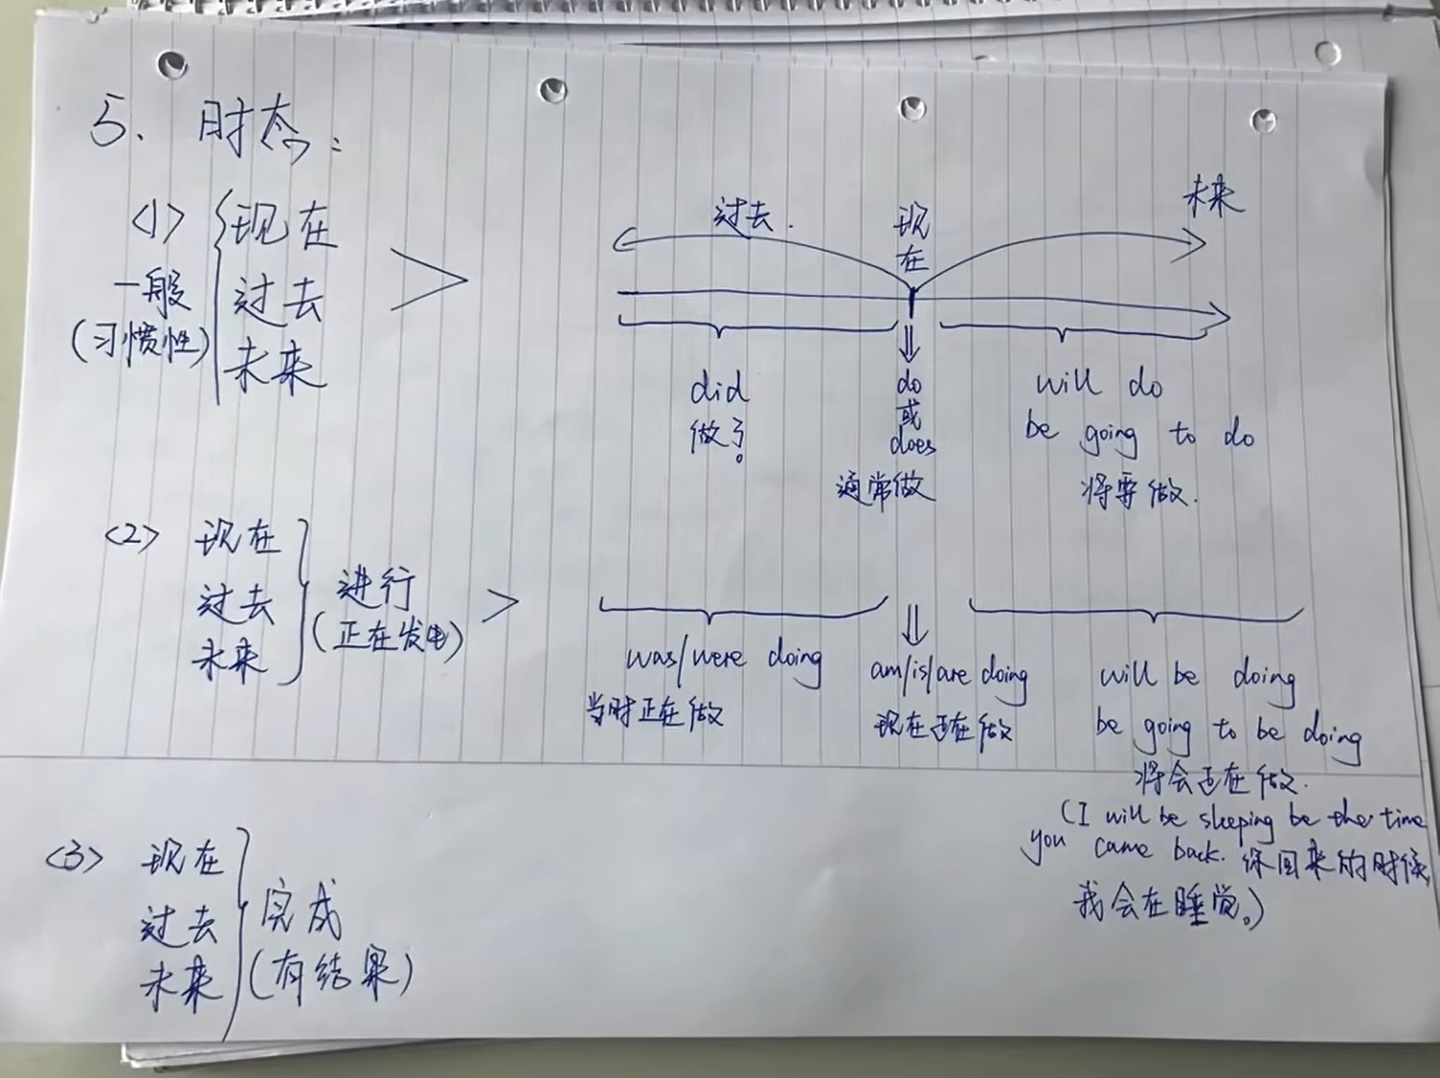 5、时态：
<1>
一般
(习惯性)
现在
过去
未来
过去.
现
在
未来
did
做了。
do
或
does
通常做
will do
be going to do
将要做.
<2>
现在
过去
未来
进行
(正在发生)
was/were doing
当时正在做
am/is/are doing
现在正在做
will be doing
be going to be doing
将会正在做.
(I will be sleeping be the time
you came back. 你回来的时候,
我会在睡觉。)
<3>
现在
过去
未来
完成
(有结果)